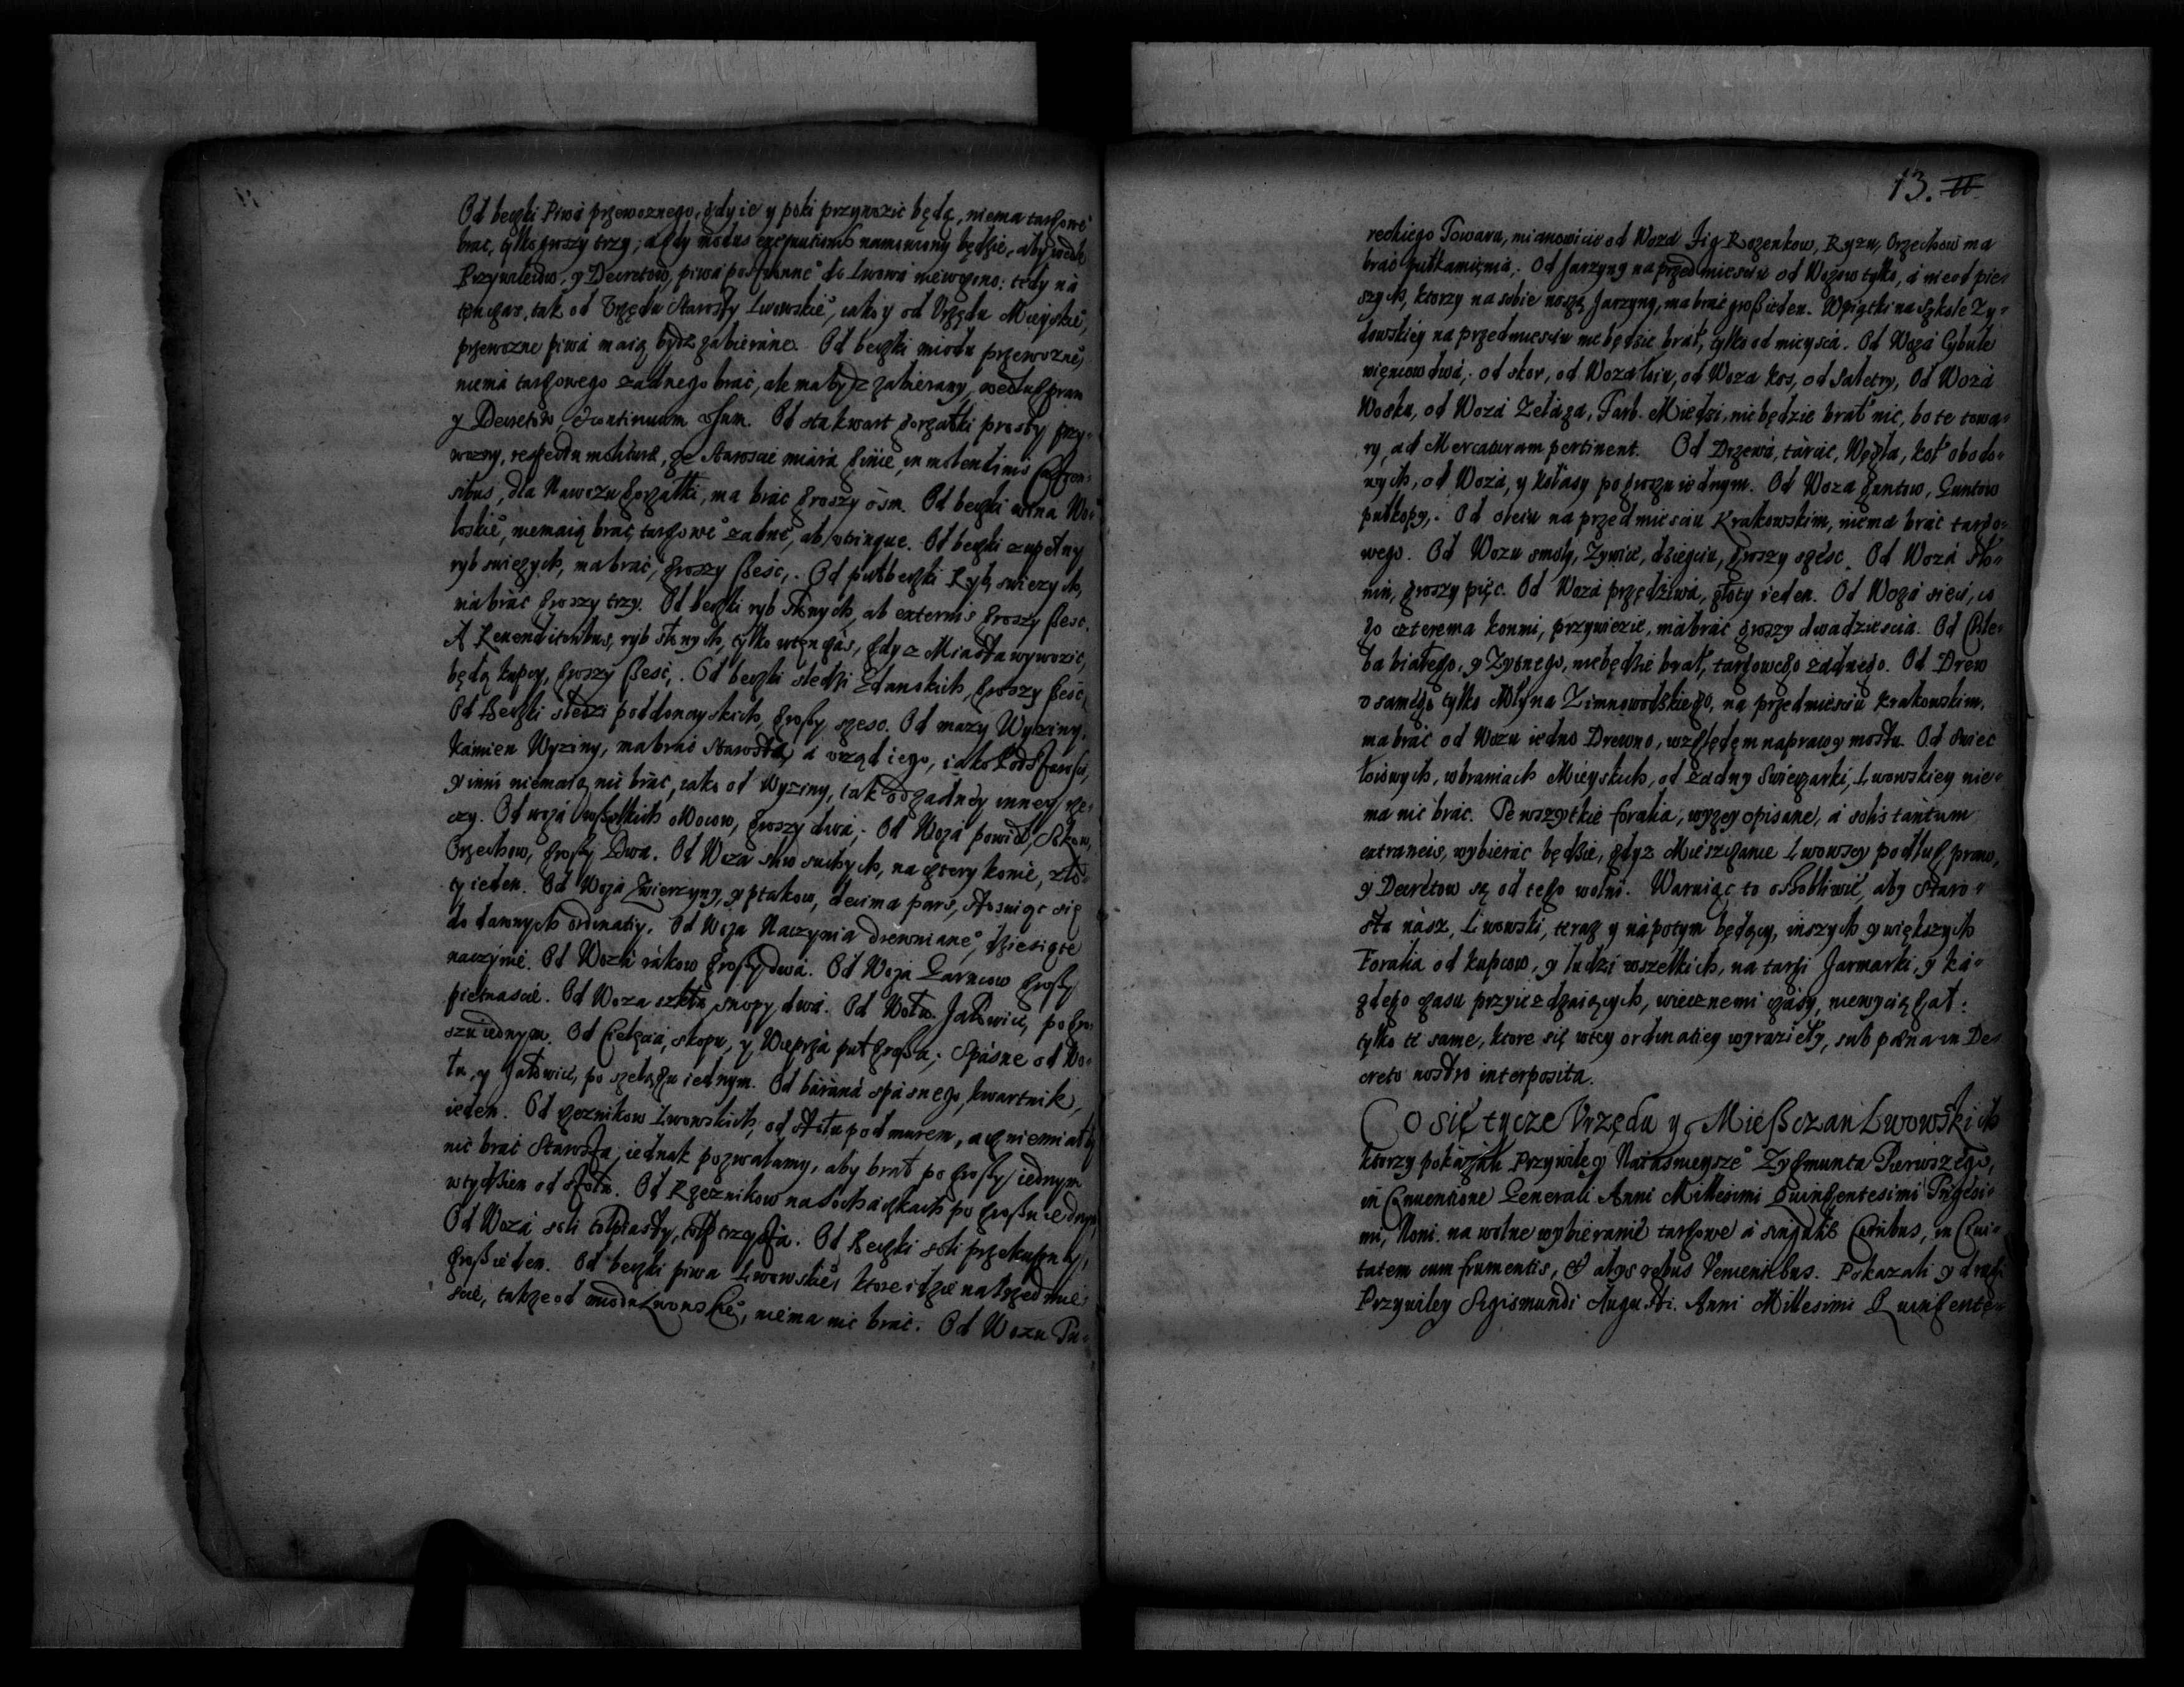 Od beczki Piwa przewoznego, gdy ie y poki przynozić będą, niema targowe
brać, tylko groszy trzy; a gdy modus executionis namowiony będzie, aby wedle
Przywileiow, y Decretow, piwa postronne do Lwowa niewożono: tedy na
tenczas, tak od Vrzędu Starosty Lwowskie, iako y od Vrzędu Mieyskie,
przewozne piwa maią bydz zabierane. Od beczki miodu przewozne,
niema targowego żadnego brać, ale ma bydz zabierany, według praw
y Decretow, & continuum Usum. Od sta kwart gorzałki prosty przy-
wozny, respectu molitura, ze Staroscie miara ginie in molendinis
sibus, dla Nawozu gorzałki, ma brać groszy ośm. Od beczki wina Wo-
łoskie, niemaią brać targowe żadne, ab utrinque. Od beczki zupełny
ryb swieżych, ma brać, groszy szesc,. Od pułbeczki Ryb swieżych,
ma brać groszy trzy. Od beczki ryb słonych, ab externis groszy szesc.
A Revenditoribus, ryb słonych, tylko wtenczas, gdy z Miasta wywozić,
będą kupcy, groszy szesć,. Od beczki sledzi Gdanskich, groszy szesć,
Od Beczki sledzi poddonayskich, groszy szesc. Od mazy Wyziny,
kamien Wyziny, ma brać Starosta, a vrząd iego, iako Podstarosci,
y inni niemaią nic brać, iako od Wyziny, tak od żadney inney rze-
czy. Od woza wszelkich owocow, groszy dwa,. Od Woza powideł, Sokow,
Orzechow, groszy Dwa. Od Woza sliw suchych, na cztery konie, zło-
ty ieden. Od Woza Zwierzyny, y ptakow, decima pars, stosuiąc się
do dawnych ordinatiy. Od Woza Naczynia drewniane, dziesiąte
naczynie. Od Woza rakow groszy dwa. Od Woza Garncow groszy
pietnascie. Od Woza szkła snopy dwa. Od Wołu Jałowice, po gro-
szu iednym. Od Cielęcia, skopu, y Wieprza puł grosza,. Spasne od Wo-
łu, y Jałowice, po szelągu iednym. Od barana spasnego, kwartnik,
ieden. Od rzeznikow Lwowskich, od stołu pod murem, acz niemiał by
nic brać Starosta, iednak pozwalamy, aby brał po groszy iednym
w tydzien od stołu. Od Rzeznikow na Sochaczkach po groszu iednym,
Od Woza soli tołpiasty, tołp trzysta. Od Beczki soli przekupny,
grosz ieden. Od beczki piwa Lwowskie, ktore idzie na Przedmie-
scie, także od miodu Lwowskie, niema nic brać. Od Wozu Tu-
13. II
reckiego Towaru, mianowicie od Woza Fig Rozenkow, Ryzu, Orzechow ma
brać pułkamięnia,. Od Jarzyny na przedmiesciu od Wozow tylko, a nie od pie-
szych, ktorzy na sobie noszą Jarzyny, ma brać grosz ieden. W piątki na Szkole Zy-
dowskiey na przedmiesciu nie będzie brał, tylko od mieysca. Od Woza Cybule
więncow dwa,. od skor, od Woza łoiu, od Woza kos, od Saletry, Od Woza
Wosku, od Woza Zelaza, Farb. Miedzi, nie będzie brał nic, bo te towa-
ry, ad Mercaturam pertinent. Od Drzewa, tarcic, Węgla, koł obodo-
wych, od Woza, y kołasy po groszu iednym. Od Woza guntow, Guntow
pułkopy,. Od oleiu na przedmiesciu Krakowskim, niema brać targo-
wego. Od Wozu smoły, Zywice, dziegciu, groszy szesc. Od Woza Sło-
nin, groszy pięc. Od Woza przędziwa, złoty ieden. Od Woza sieci, co
go czterema konmi, przywiezie, ma brać groszy dwadziescia. Od Chle-
ba białego, y Zytnego, nie będzie brał, targowego żadnego. Od Drew
o samego tylko Młyna Zimnowodskiego, na przedmiesciu Krakowskim,
ma brać od Wozu iedno Drewno, względem naprawy mostu. Od swiec
łoiowych, w braniach Mieyskich, od żadny Swieczarki, Lwowskiey nie-
ma nic brać. Te wszytkie foralia, wyżey opisane, a solis tantum
extraneis, wybierać będzie, gdyz Mieszczanie Lwowscy podług praw,
y Decretow są od tego wolni. Waruiąc to osobliwie, aby Staro-
sta nasz, Lwowski, teraz y napotym będący, inszych y większych
Foralia od kupcow, y ludzi wszelkich, na targi Jarmarki, y ka-
żdego czasu przyiezdzaiących, wiecznemi czasy, niewyciągał:
tylko te same, ktore się w tey ordinatiey wyraziely, sub pœna in De-
creto nostro interposita.
Co się tycze Vrzędu y Mieszczan Lwowskich
ktorzy pokazali Przywiley Naiasnieysze Zygmunta Pierwszego,
in Conuentione Generali Anni Millesimi Quingentesimi Trigesi-
mi, Noni. na wolne wybieranie targowe a singulis Curribus, in Ciui-
tatem cum frumentis, & alys rebus Venientibus. Pokazali y drugi
Przywiley Sigismundi Augusti. Anni Millesimi Quingente-